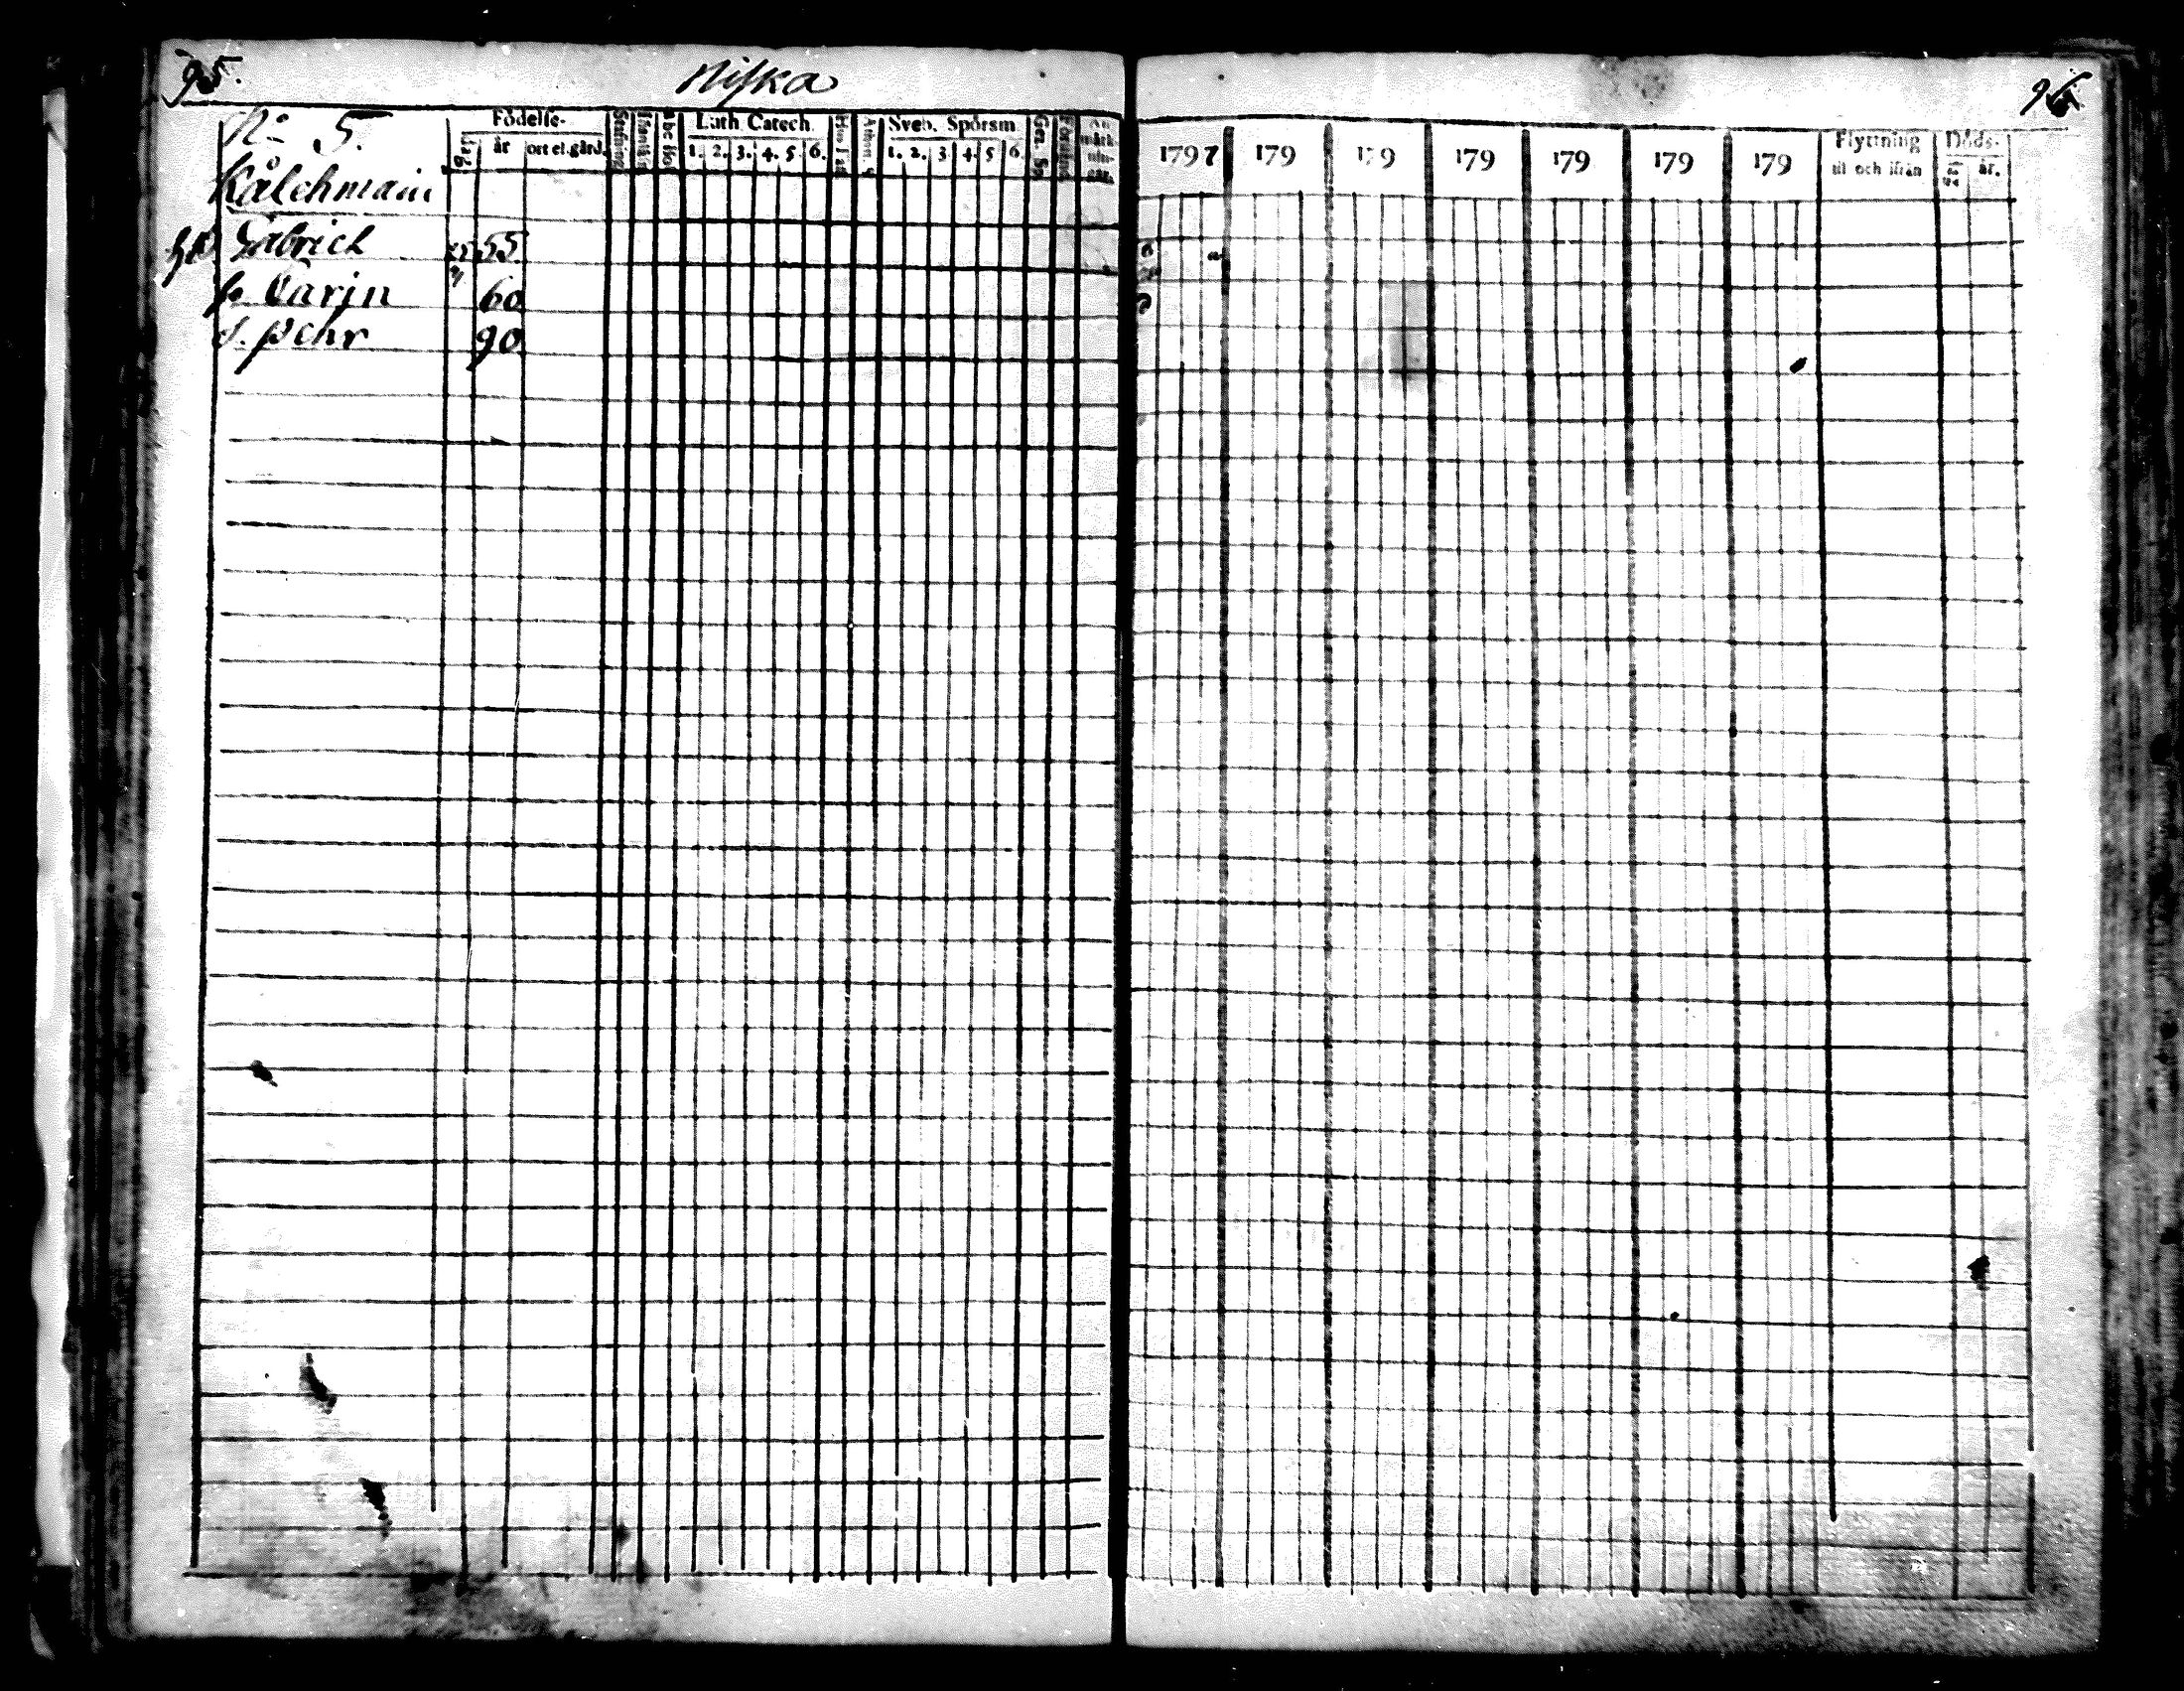 95.
Niska
96
No 5.
Födelse-
dag
år
ort el. gård.
Abc Bok
Luth. Catech.
1. 2. 3. 4. 5. 6.
Sveb. Spörsm
1. 2. 3 4. 5 6.
1797 179 179 179 179 179 179
Flyttning
til och ifrån
Döds-
år.
Kålehmain
Gabriel 55
h. Carin 60
S. Pehr 90